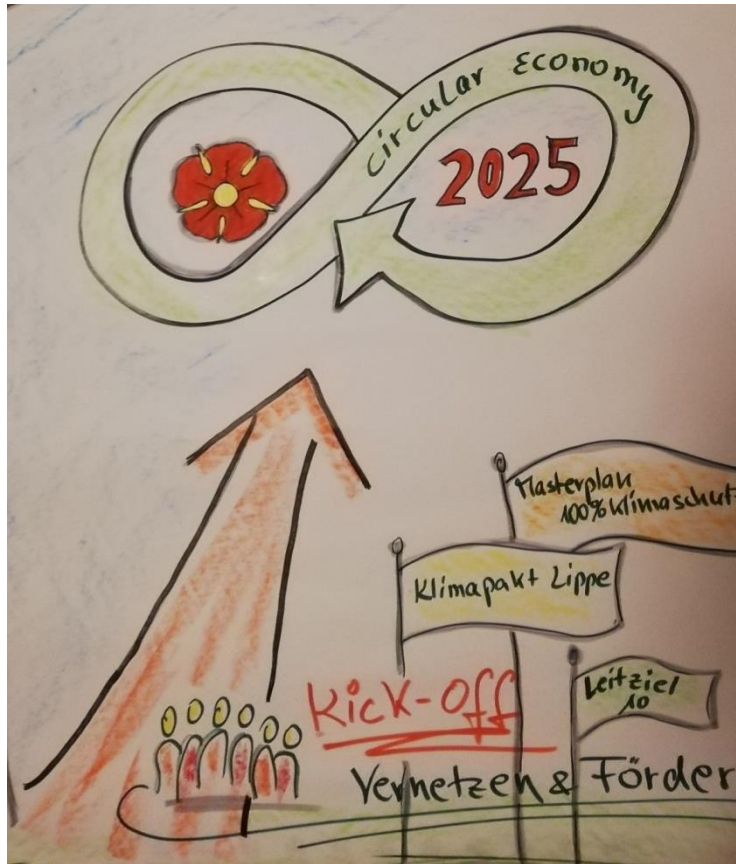 circular Economy
2025
Masterplan
100% Klimaschutz
Klimapakt Lippe
Leitziel
10
Kick-Off
Vernetzen & Förder